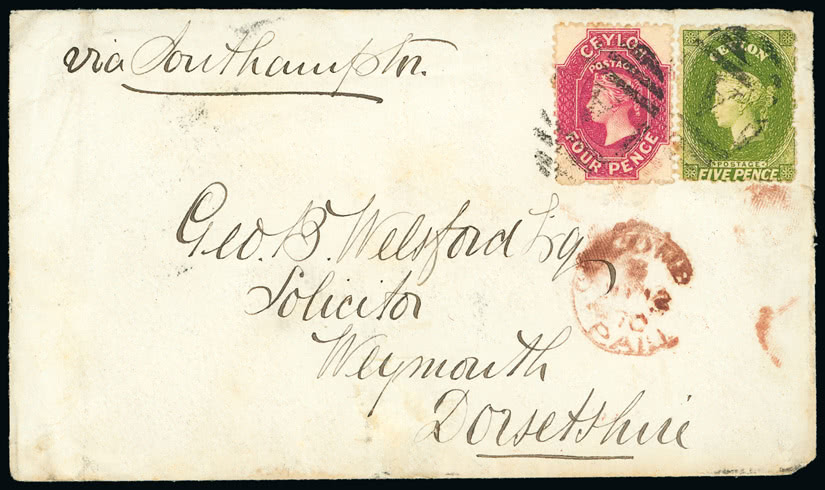 via Southampton.
CEYLON
POSTAGE
FOUR PENCE
CEYLON
POSTAGE
FIVE PENCE
Geo. B. Welsford Esq
Solicitor
Weymouth
Dorsetshire
70
PAID